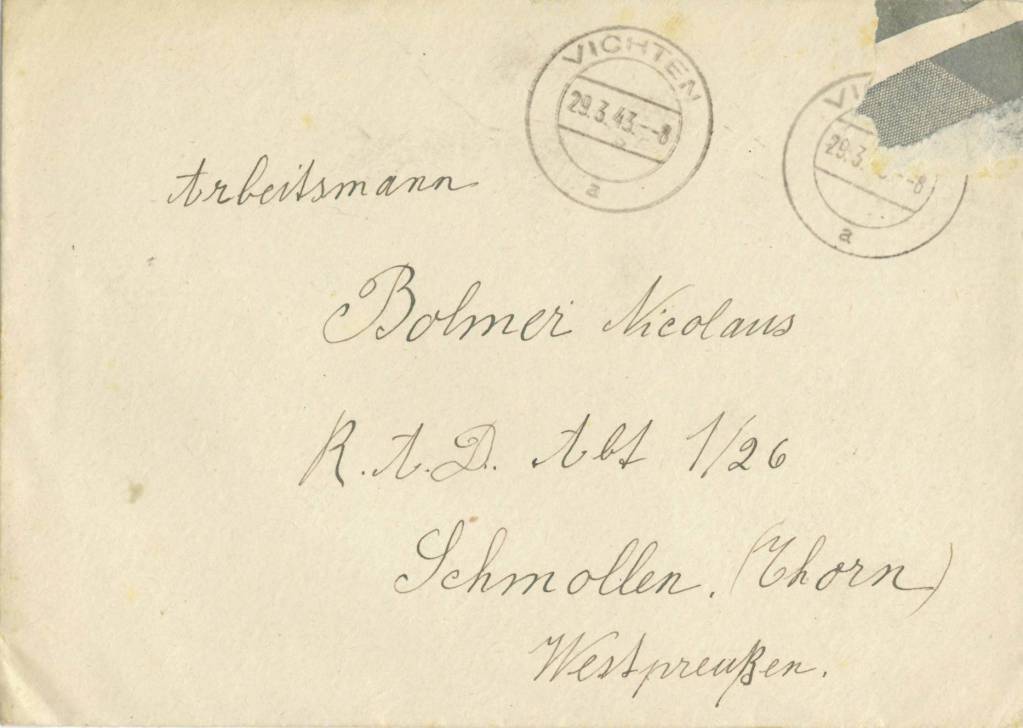 VICHTEN
29.3.43.--8
a
VI
29.3 --8
a
Arbeitsmann
Bolmer Nicolaus
R.A.D. Abt 1/26
Schmollen. (Thorn)
Westpreußen.